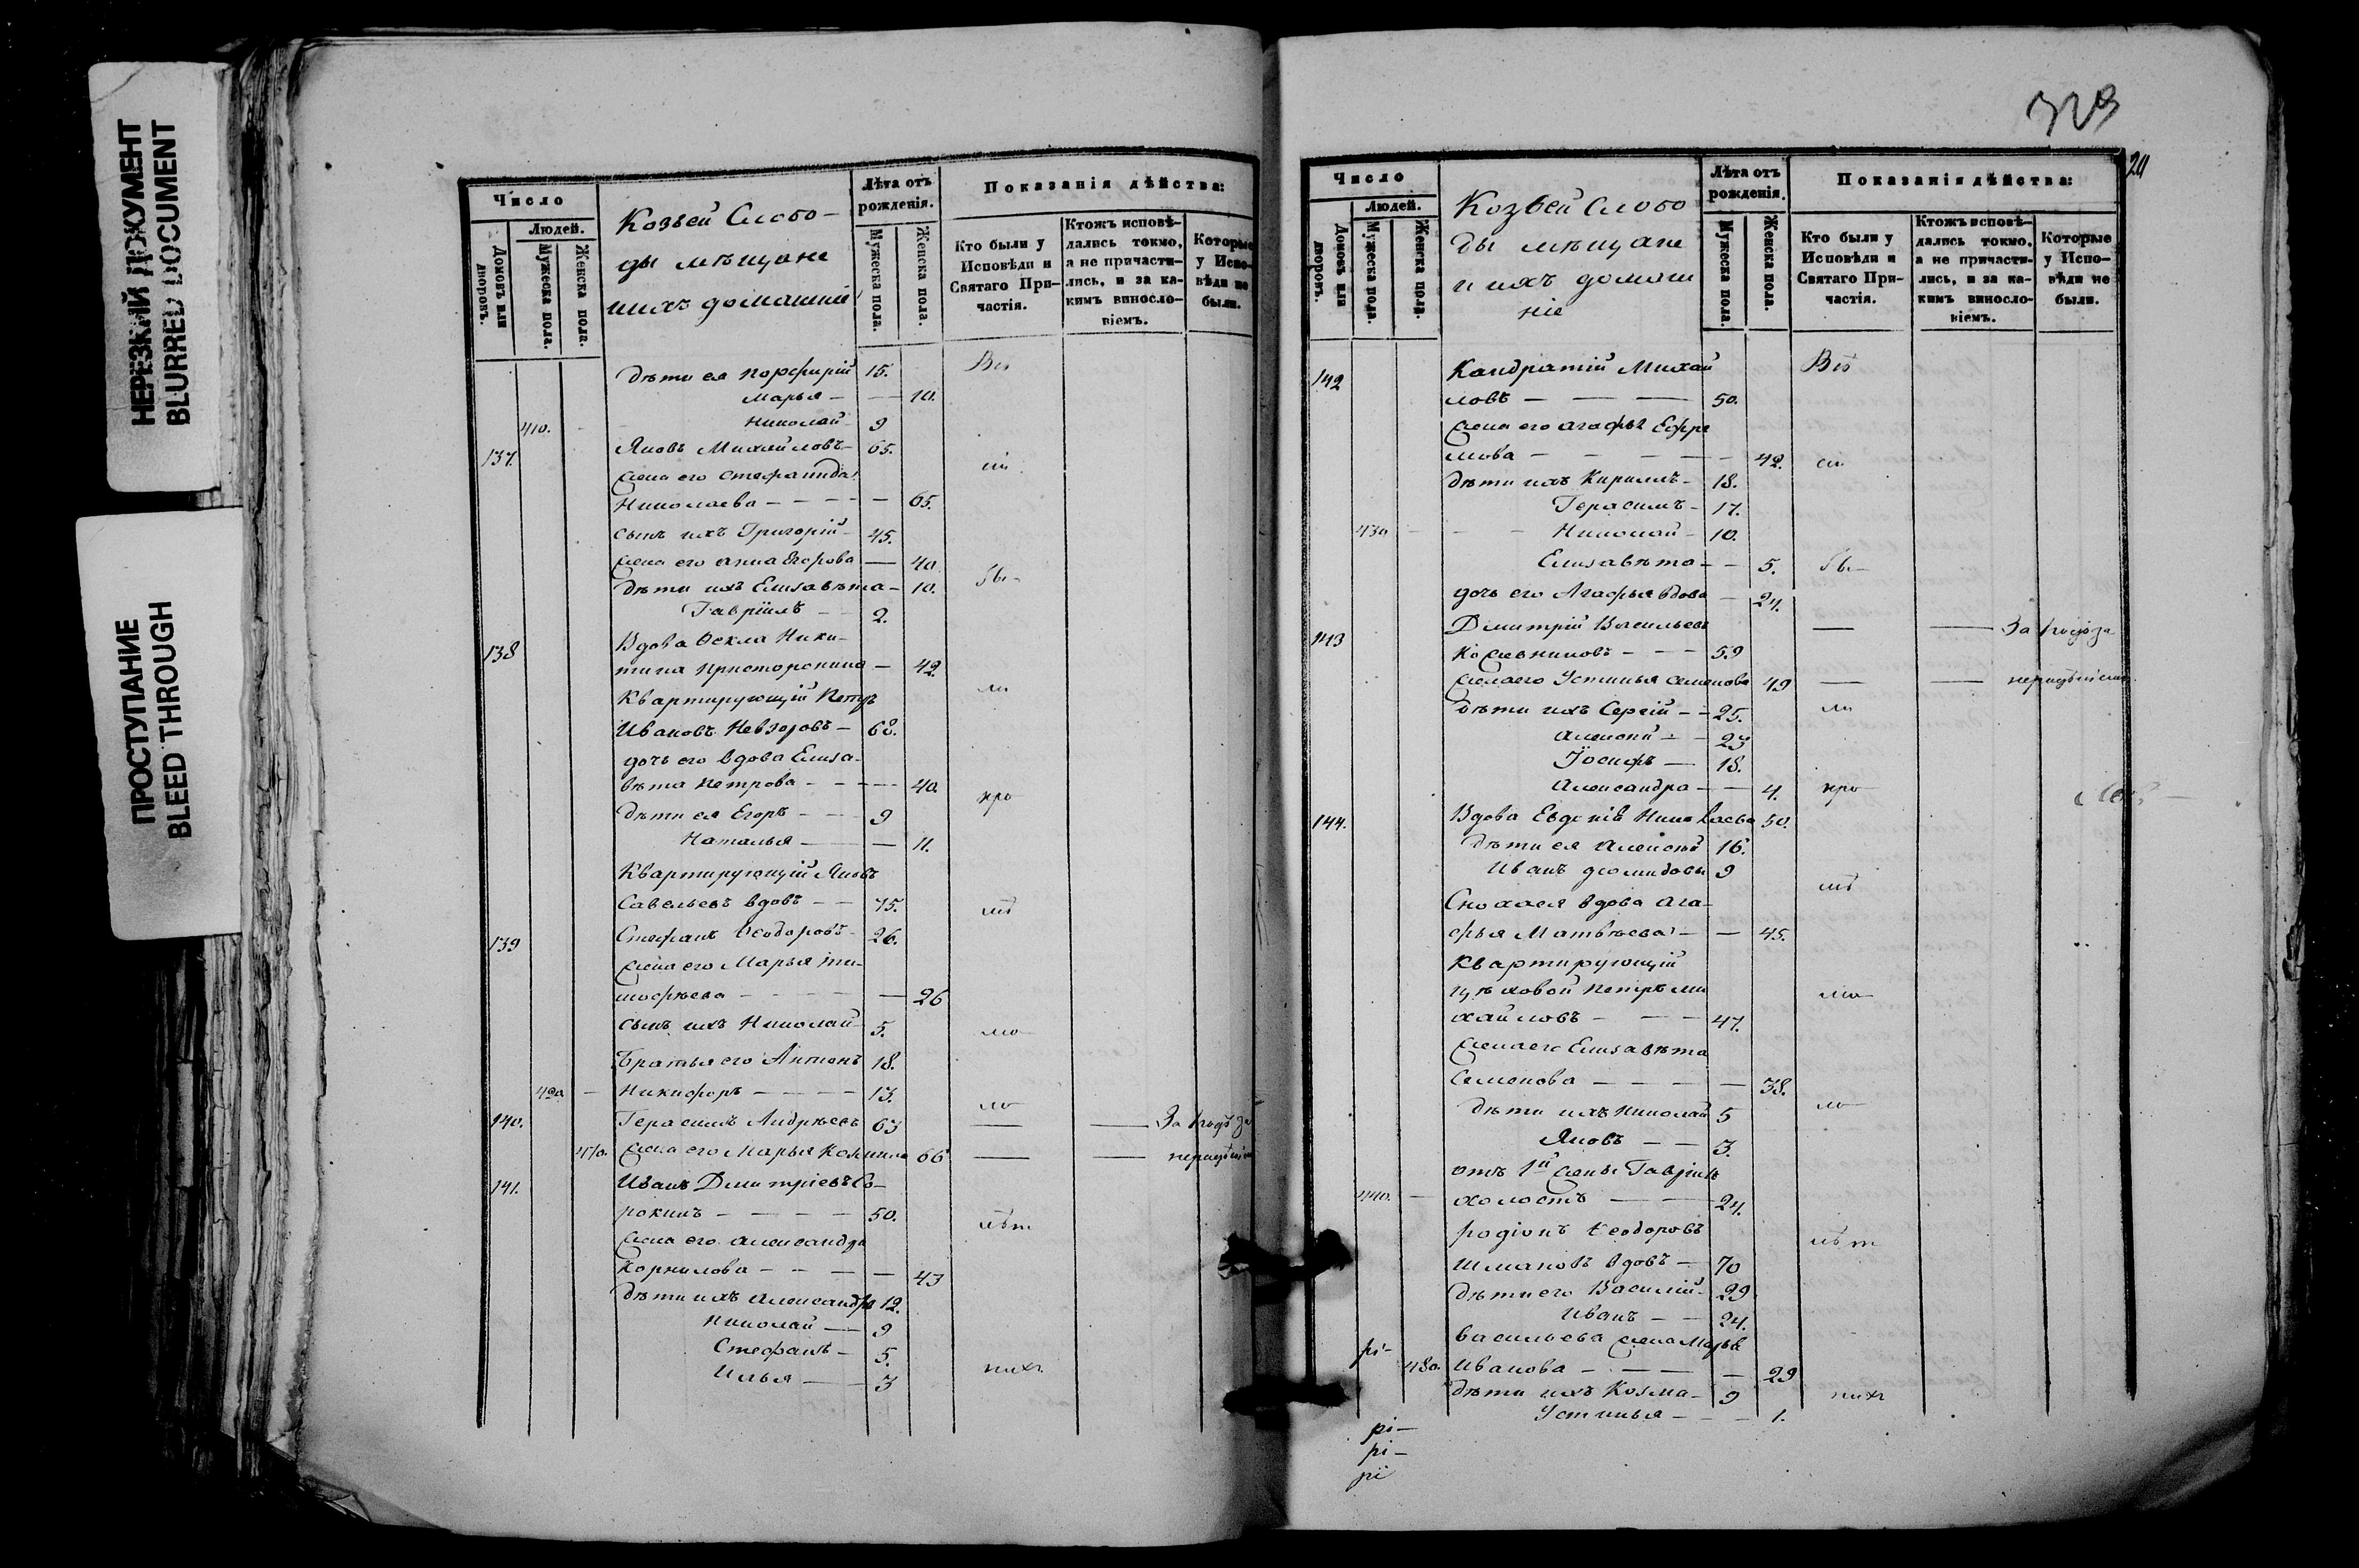 НЕРЕЗКИЙ ДОКУМЕНТ
BLURRED DOCUMENT
ПРОСТУПАНИЕ
BLEED THROUGH
Число
Людей.
Домовъ или дворовъ.
Мужеска пола.
Женска пола.
Козьей Слобо-
ды мѣщане
и ихъ домашніе
Лѣта отъ рожденія.
Мужеска пола.
Женска пола.
Показанія дѣйства:
Кто были у Исповѣди и Святаго Причастія.
Ктожъ исповѣ-
дались токмо,
а не причасти-
лись, и за ка-
кимъ виносло-
віемъ.
Которые
у Испо-
вѣди не
были.
Дѣти ея Порфирій 15.
Марья — 10.
410. Николай 9
137. Яковъ Михайловъ 65.
Жена его Степанида
Николаева — 65.
Сынъ ихъ Григорій 45.
Жена его Анна Егорова — 40
Дѣти ихъ Елисавѣта — 10.
Гавріилъ — 2.
138 Вдова Ѳекла Ники-
тина — 42.
Квартирующій Петръ
Ивановъ Невзоровъ — 68.
дочь его вдова Елиза-
вѣта Петрова — 40.
Дѣти ея Егоръ — 9
Наталья — 11.
Квартирующій Яковъ
Савельевъ вдовъ — 75.
139 Стефанъ Ѳеодоровъ 26.
Жена его Марья Ти-
моѳѣева — 26
Сынъ ихъ Николай 5.
Братья его Антонъ 18.
420 — Никифоръ — 13.
140. Герасимъ Андрѣевъ 63 — — За
470. Жена его Марья 66 — —
141. Иванъ Дмитріевъ Со-
рокинъ — 50.
Жена его Александра
Корнилова — 43
Дѣти ихъ Александръ 12.
Николай — 9
Стефанъ — 5.
Илья — 3
329
Число
Людей.
Домовъ или дворовъ.
Мужеска пола.
Женска пола.
Козьей Слобо
ды мѣщане
и ихъ домаш
ніе
Лѣта отъ рожденія.
Мужеска пола.
Женска пола.
Показанія дѣйства:
Кто были у Исповѣди и Святаго Причастія.
Ктожъ исповѣ-
дались токмо,
а не причасти-
лись, и за ка-
кимъ виносло-
віемъ.
Которые
у Испо-
вѣди не
были.
142 Кандратій Михай
ловъ — 50.
Жена его Агафья Ефре
мова — 42.
Дѣти ихъ Кириллъ — 18.
Герасимъ — 17.
430 — Николай — 10.
Елизавѣта — 5.
дочь его Агафья вдова — 24.
143 Димитрій Васильевъ — — За
Кожевниковъ — 59
Жена его Устинья Семенова 49 — —
Дѣти ихъ Сергій — 25.
Алексій — 23
Іосифъ — 18.
Александра — 4.
144. Вдова Евдокія Николаева 50.
Дѣти ея Алексѣй 16.
Иванъ 9
Сноха ея вдова Ага-
фья Матвѣева — 45.
Квартирующій
цѣховой Петръ Ми
хайловъ — 47.
Жена его Елизавѣта
Семенова — 38.
Дѣти ихъ Николай 5
Яковъ — 3.
отъ 1й жены Гавріилъ
440. — холостъ — 24.
Родіонъ Ѳеодоровъ
вдовъ — 70
Дѣти его Василій — 29
Иванъ — 24.
Васильева жена Марья
480. Иванова — 29
Дѣти ихъ Козма — 9
Устинья — 1.